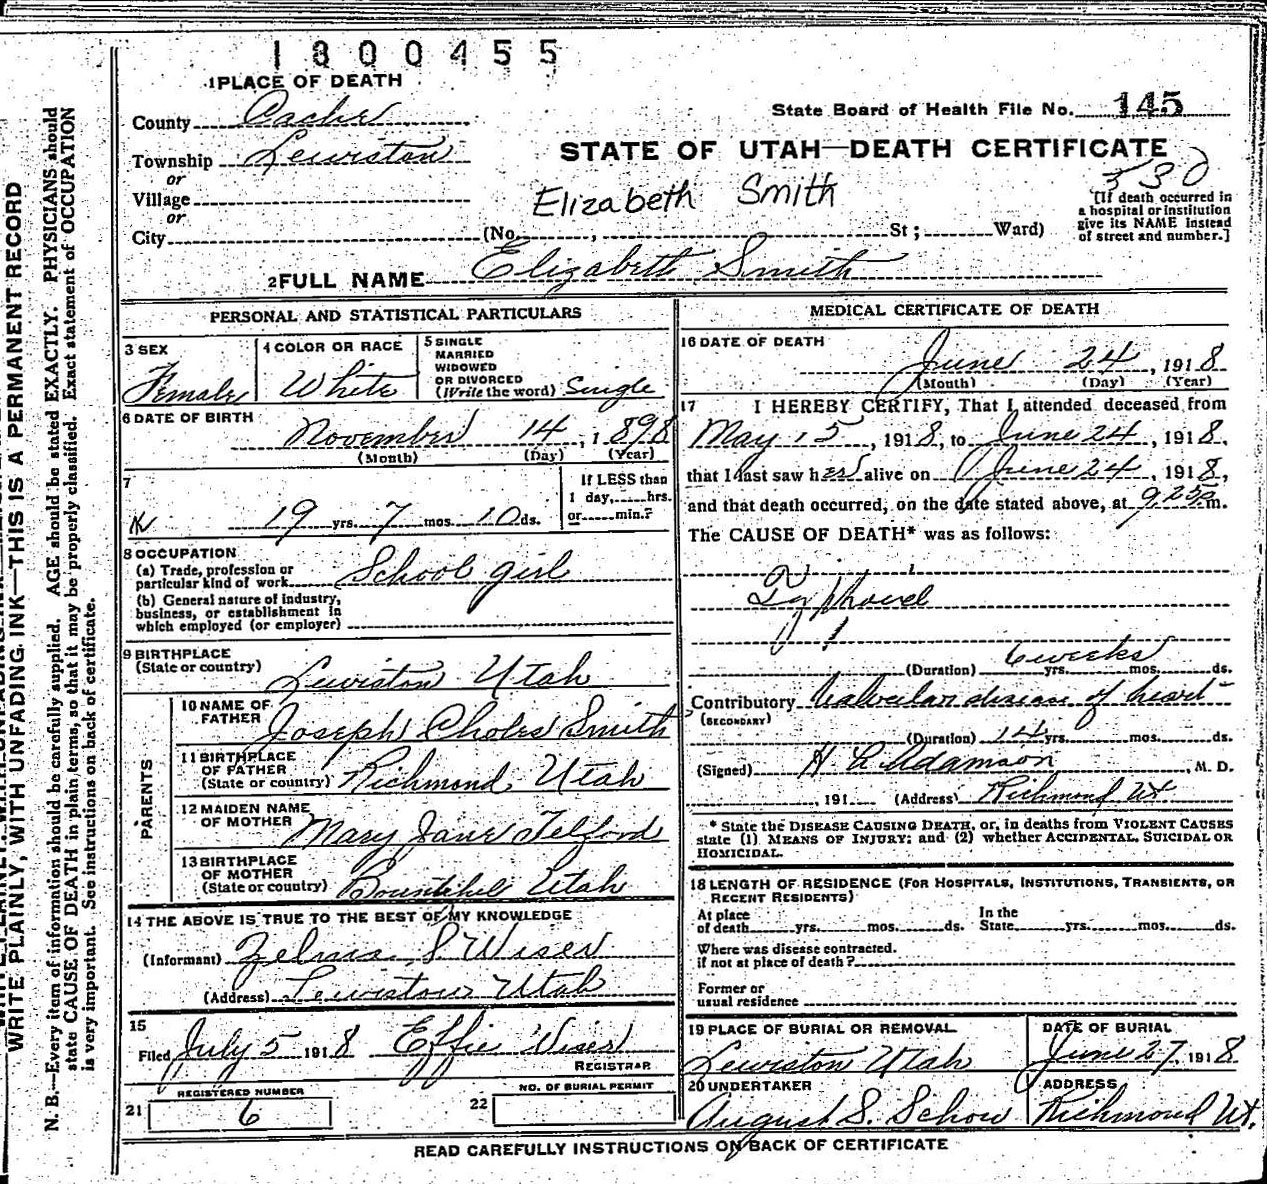 1300455
1 PLACE OF DEATH
State Board of Health File No. 145
County Cache
Township Lewiston
STATE OF UTAH—DEATH CERTIFICATE
or
530
Village
Elizabeth Smith
[If death occurred in
a hospital or institution
give its NAME instead
of street and number.]
or
City (No. , St ; Ward)
2 FULL NAME Elizabeth Smith
PERSONAL AND STATISTICAL PARTICULARS
3 SEX
Female
4 COLOR OR RACE
White
5 SINGLE
MARRIED
WIDOWED
OR DIVORCED
(Write the word) Single
6 DATE OF BIRTH
November 14, 1898
(Month) (Day) (Year)
7
19 yrs. 7 mos. 10 ds.
If LESS than
1 day, hrs.
or min.?
8 OCCUPATION
(a) Trade, profession or
particular kind of work School girl
(b) General nature of industry,
business, or establishment in
which employed (or employer)
9 BIRTHPLACE
(State or country) Lewiston Utah
PARENTS
10 NAME OF
FATHER Joseph Smith
11 BIRTHPLACE
OF FATHER
(State or country) Richmond, Utah
12 MAIDEN NAME
OF MOTHER Mary Jane Telford
13 BIRTHPLACE
OF MOTHER
(State or country) Bountiful Utah
14 THE ABOVE IS TRUE TO THE BEST OF MY KNOWLEDGE
(Informant) Zelma S. Wiser
(Address) Lewiston Utah
15
Filed July 5 1918 Effie Wiser
REGISTRAR
REGISTERED NUMBER
21 6
NO. OF BURIAL PERMIT
22
MEDICAL CERTIFICATE OF DEATH
16 DATE OF DEATH
June 24, 1918
(Month) (Day) (Year)
17 I HEREBY CERTIFY, That I attended deceased from
May 15, 1918, to June 24, 1918,
that I last saw her alive on June 24, 1918,
and that death occurred, on the date stated above, at 9.25 p m.
The CAUSE OF DEATH* was as follows:
Typhoid
(Duration) 6 weeks yrs. mos. ds.
Contributory Valvular disease of heart
(SECONDARY)
(Duration) 14 yrs. mos. ds.
(Signed) H C Adamson, M. D.
, 191 (Address) Richmond Ut
* State the DISEASE CAUSING DEATH, or, in deaths from VIOLENT CAUSES
state (1) MEANS OF INJURY; and (2) whether ACCIDENTAL, SUICIDAL OR
HOMICIDAL.
18 LENGTH OF RESIDENCE (FOR HOSPITALS, INSTITUTIONS, TRANSIENTS, OR
RECENT RESIDENTS)
At place
of death yrs. mos. ds.
In the
State yrs. mos. ds.
Where was disease contracted.
if not at place of death?
Former or
usual residence
19 PLACE OF BURIAL OR REMOVAL
Lewiston Utah
DATE OF BURIAL
June 27, 1918
20 UNDERTAKER
August S. Schow
ADDRESS
Richmond Ut.
READ CAREFULLY INSTRUCTIONS ON BACK OF CERTIFICATE
WRITE PLAINLY, WITH UNFADING INK—THIS IS A PERMANENT RECORD
N. B.—Every item of information should be carefully supplied. AGE should be stated EXACTLY. PHYSICIANS should
state CAUSE OF DEATH in plain terms, so that it may be properly classified. Exact statement of OCCUPATION
is very important. See instructions on back of certificate.